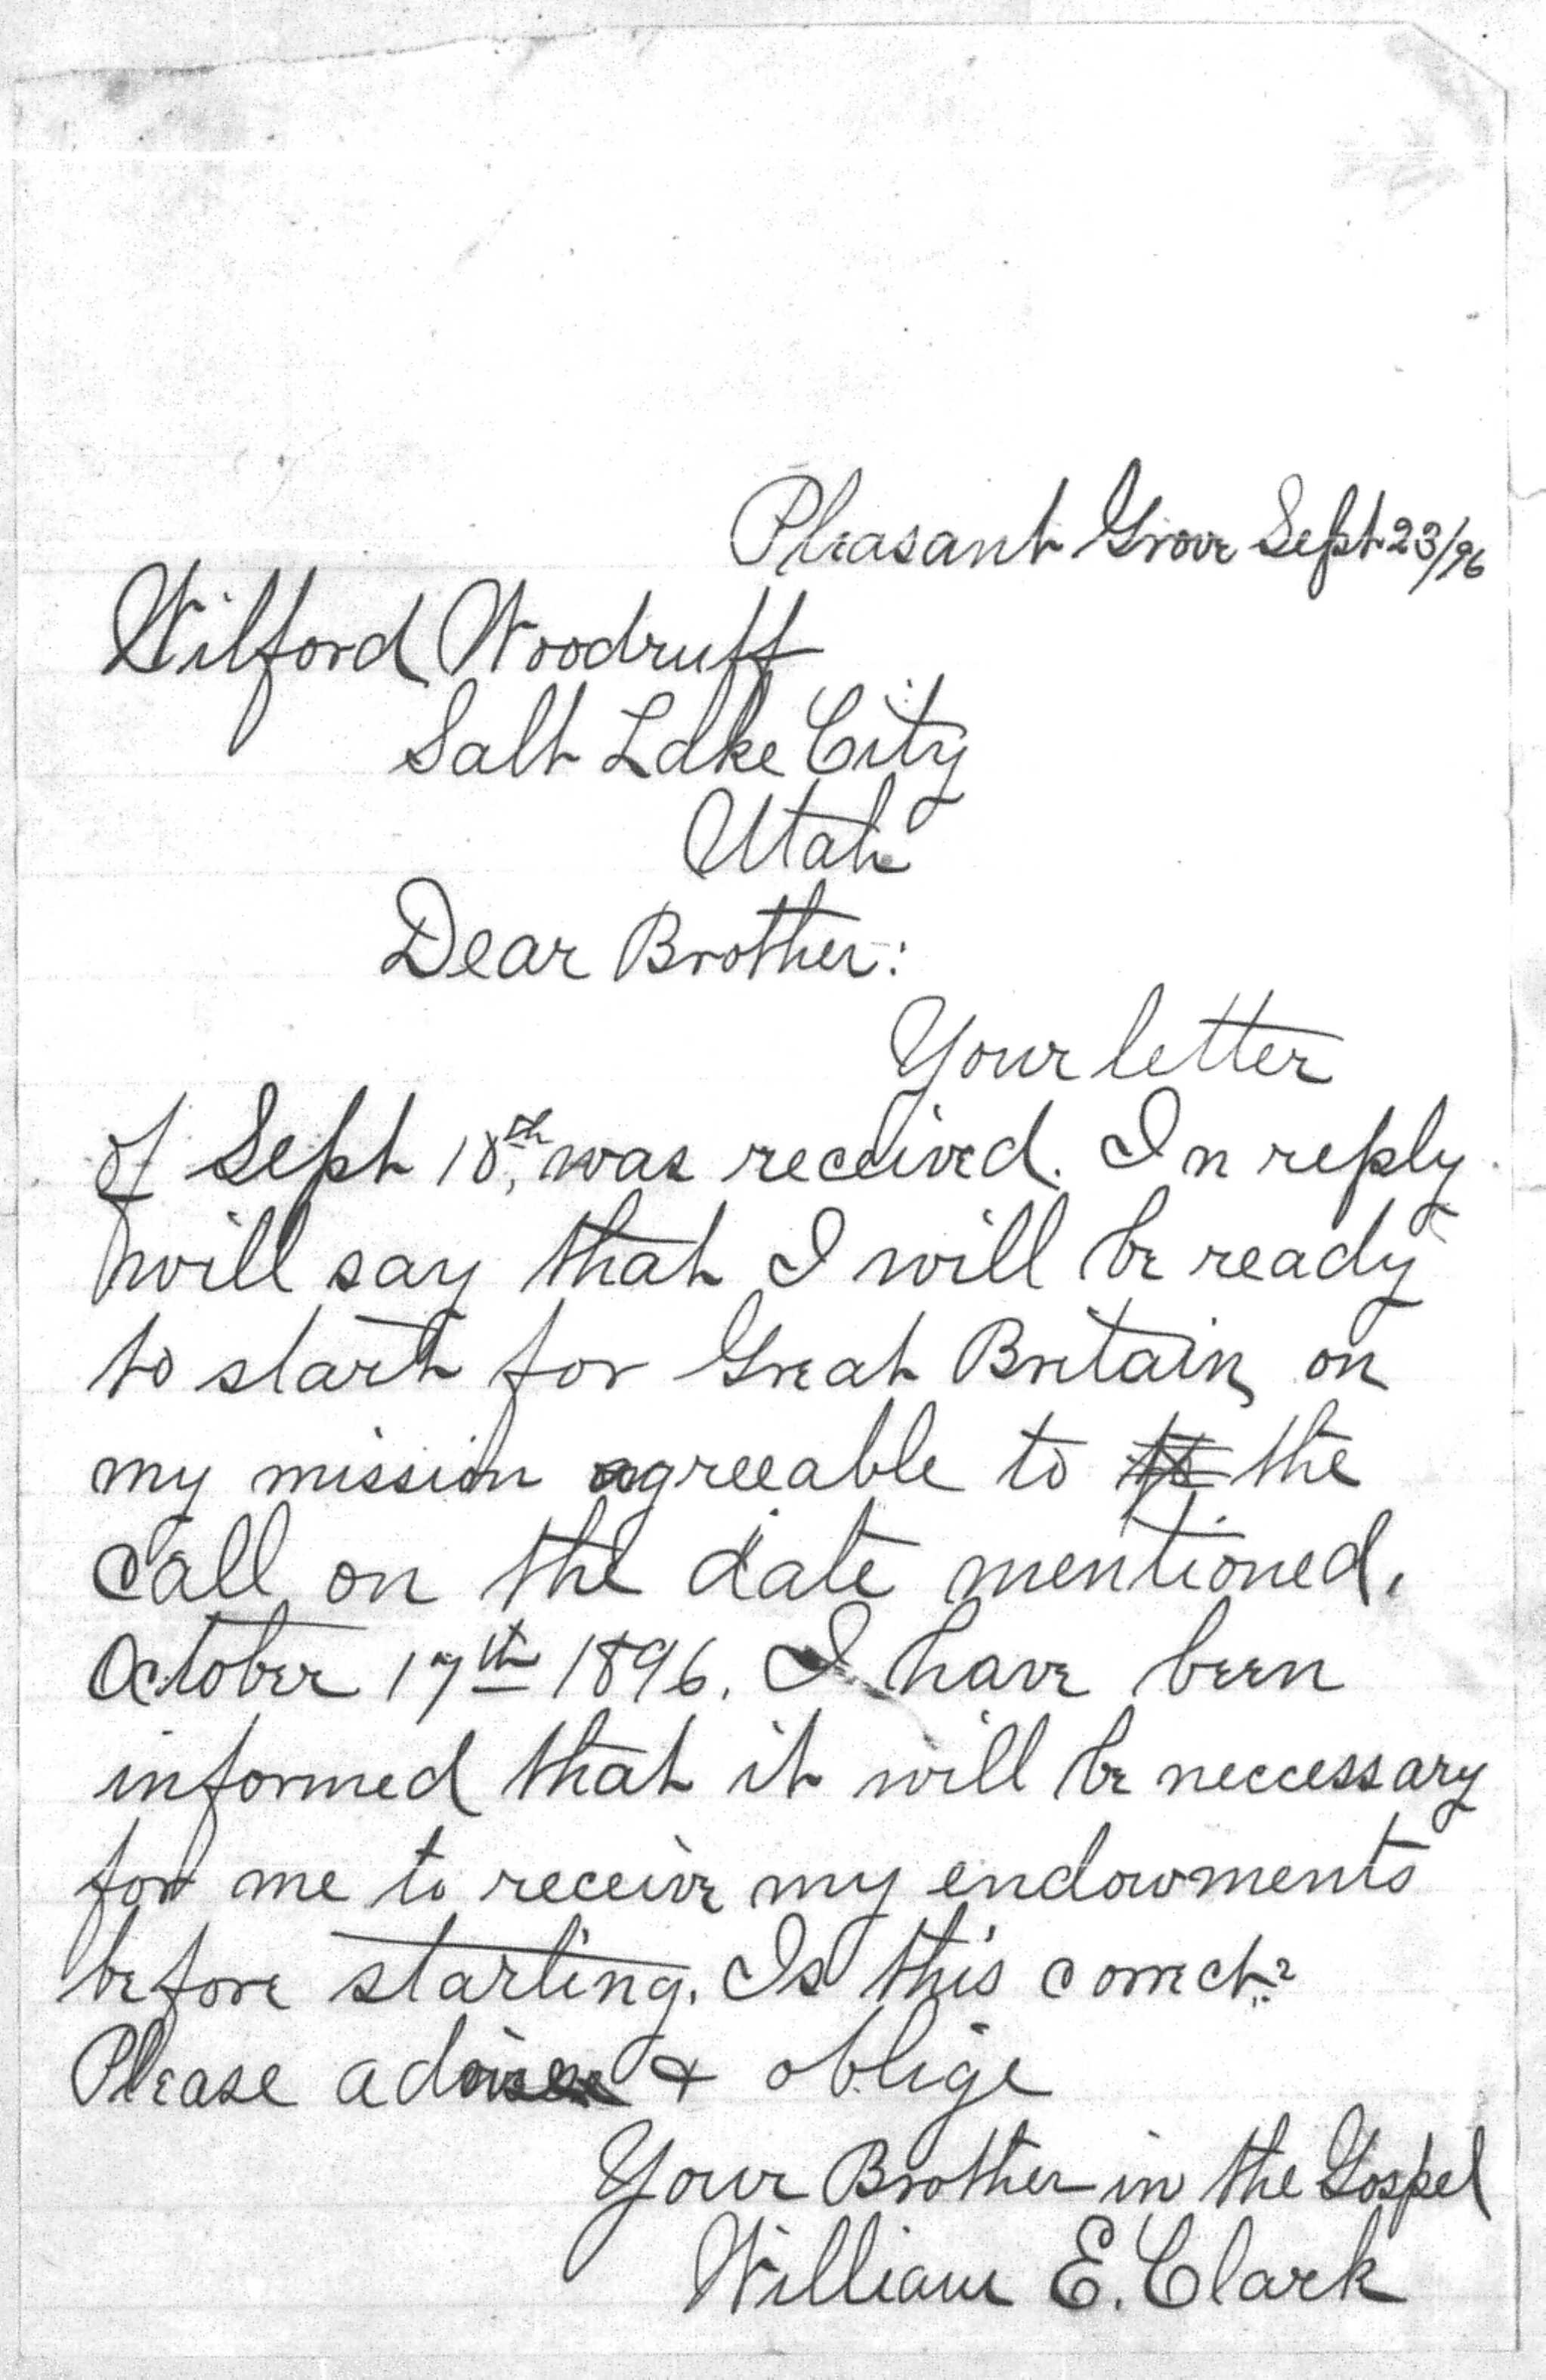 Pleasant Grove Sept 23/96
Wilford Woodruff
Salt Lake City
Utah
Dear Brother:
Your letter
of Sept 18th, was received. In reply
will say that I will be ready
to start for Great Britain, on
my mission agreeable to to the
call on the date mentioned,
October 17th 1896. I have been
informed that it will be neccessary
for me to receive my endowments
before starting. Is this correct?
Please advise & oblige
Your Brother in the Gospel
William E. Clark